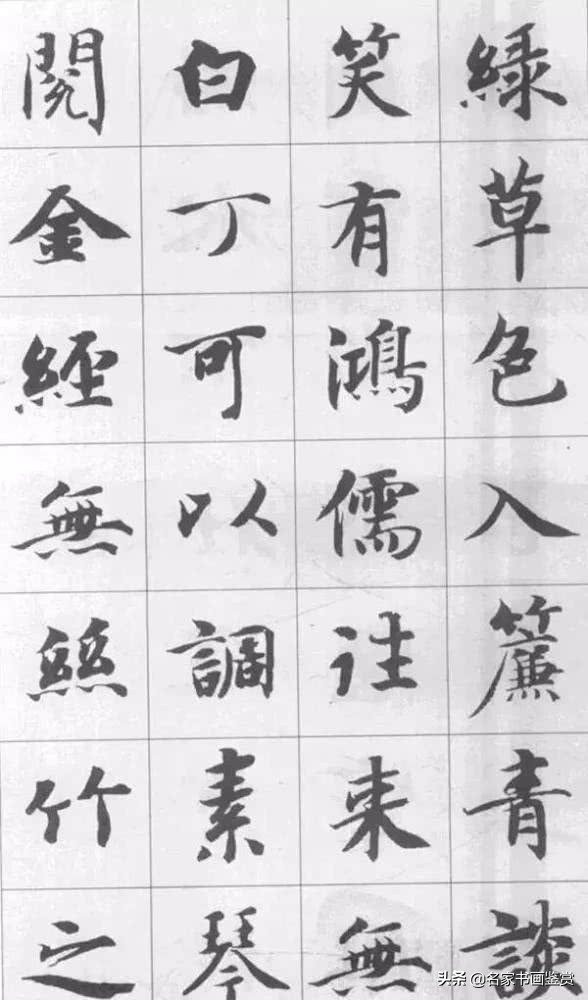 綠草色入簾青談
笑有鴻儒往来無
白丁可以調素琴
閱金經無絲竹之
头条 @名家书画鉴赏